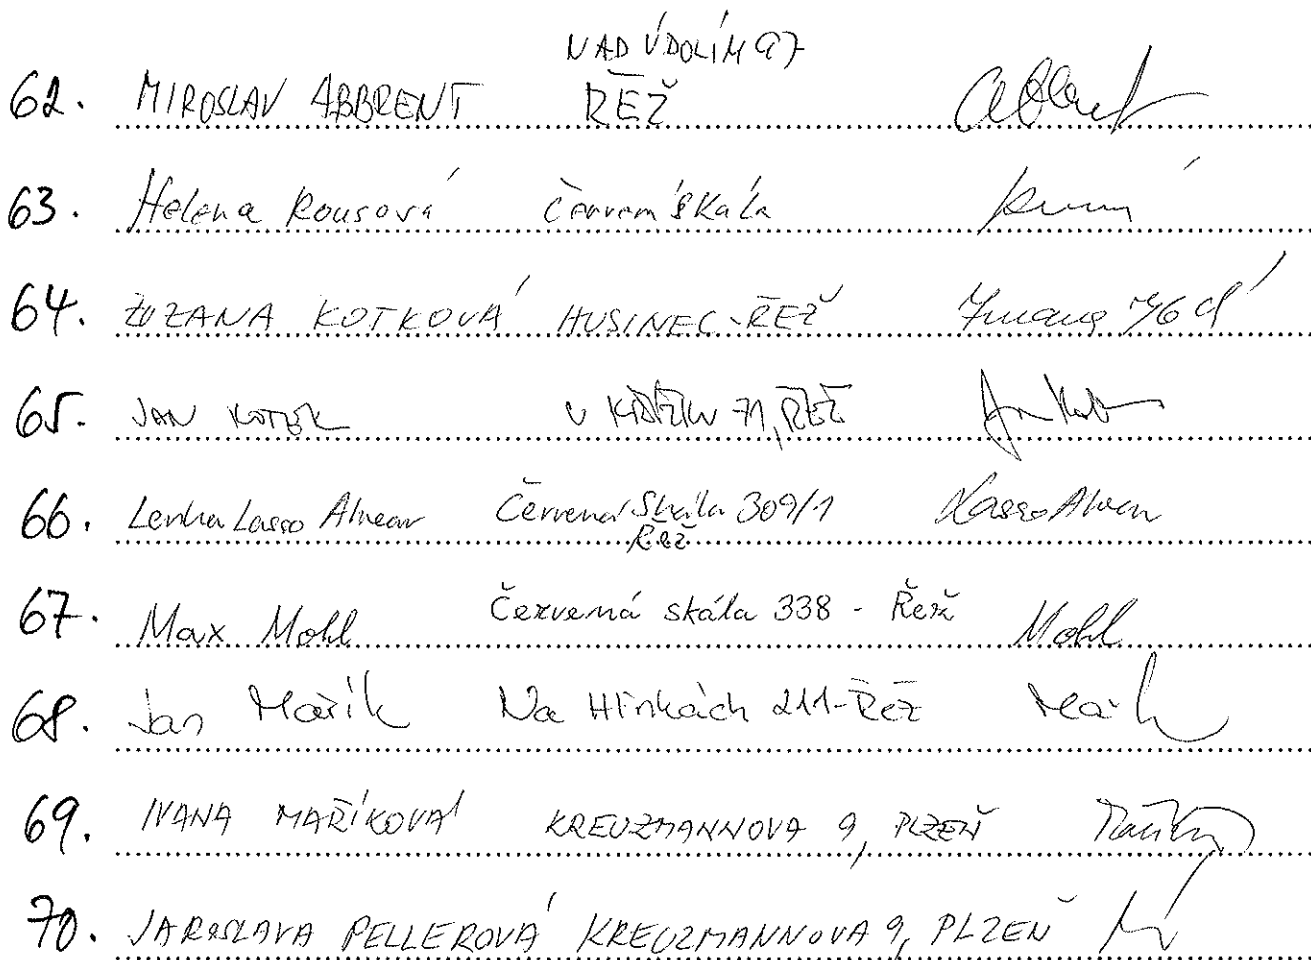 NAD ÚDOLÍM 97
62. MIROSLAV ABBRENT ŘEŽ
63. Helena Rousová Červená Skála
64. ZUZANA KOTKOVÁ HUSINEC-ŘEŽ
65. JAN KOTEK U KŘÍŽKU 71, ŘEŽ
66. Lenka Lasso Alvear Červená Skála 309/1 Lasso Alvear
Řež
67. Max Mohl Červená skála 338 - Řež Mohl
68. Jan Mařík Na Hlinkách 211-Řež
69. IVANA MAŘÍKOVÁ KREUZMANNOVA 9, PLZEŇ
70. JAROSLAVA PELLEROVÁ KREUZMANNOVA 9, PLZEŇ